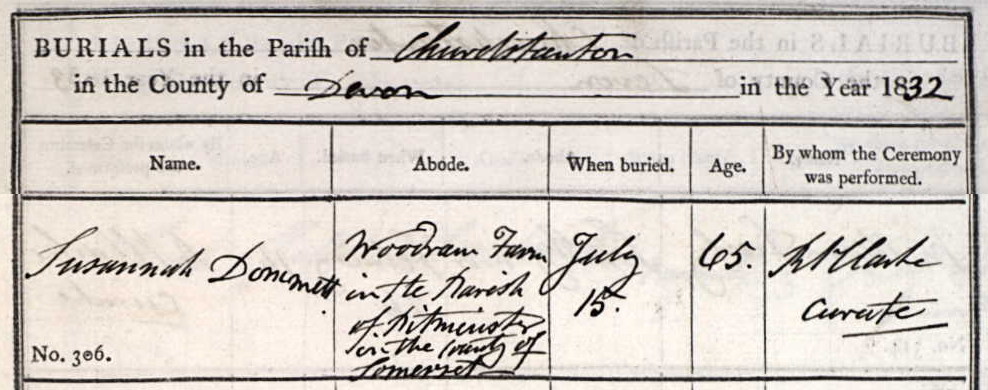 BURIALS in the Parish of Churchstanton
in the County of Devon in the Year 1832
Name. Abode. When buried. Age. By whom the Ceremony was performed.
Susannah Dommett
No. 306.
Woodram Farm
in the Parish
of Pitminster
in the County of
Somerset
July
15.
65.
Clarke
Curate